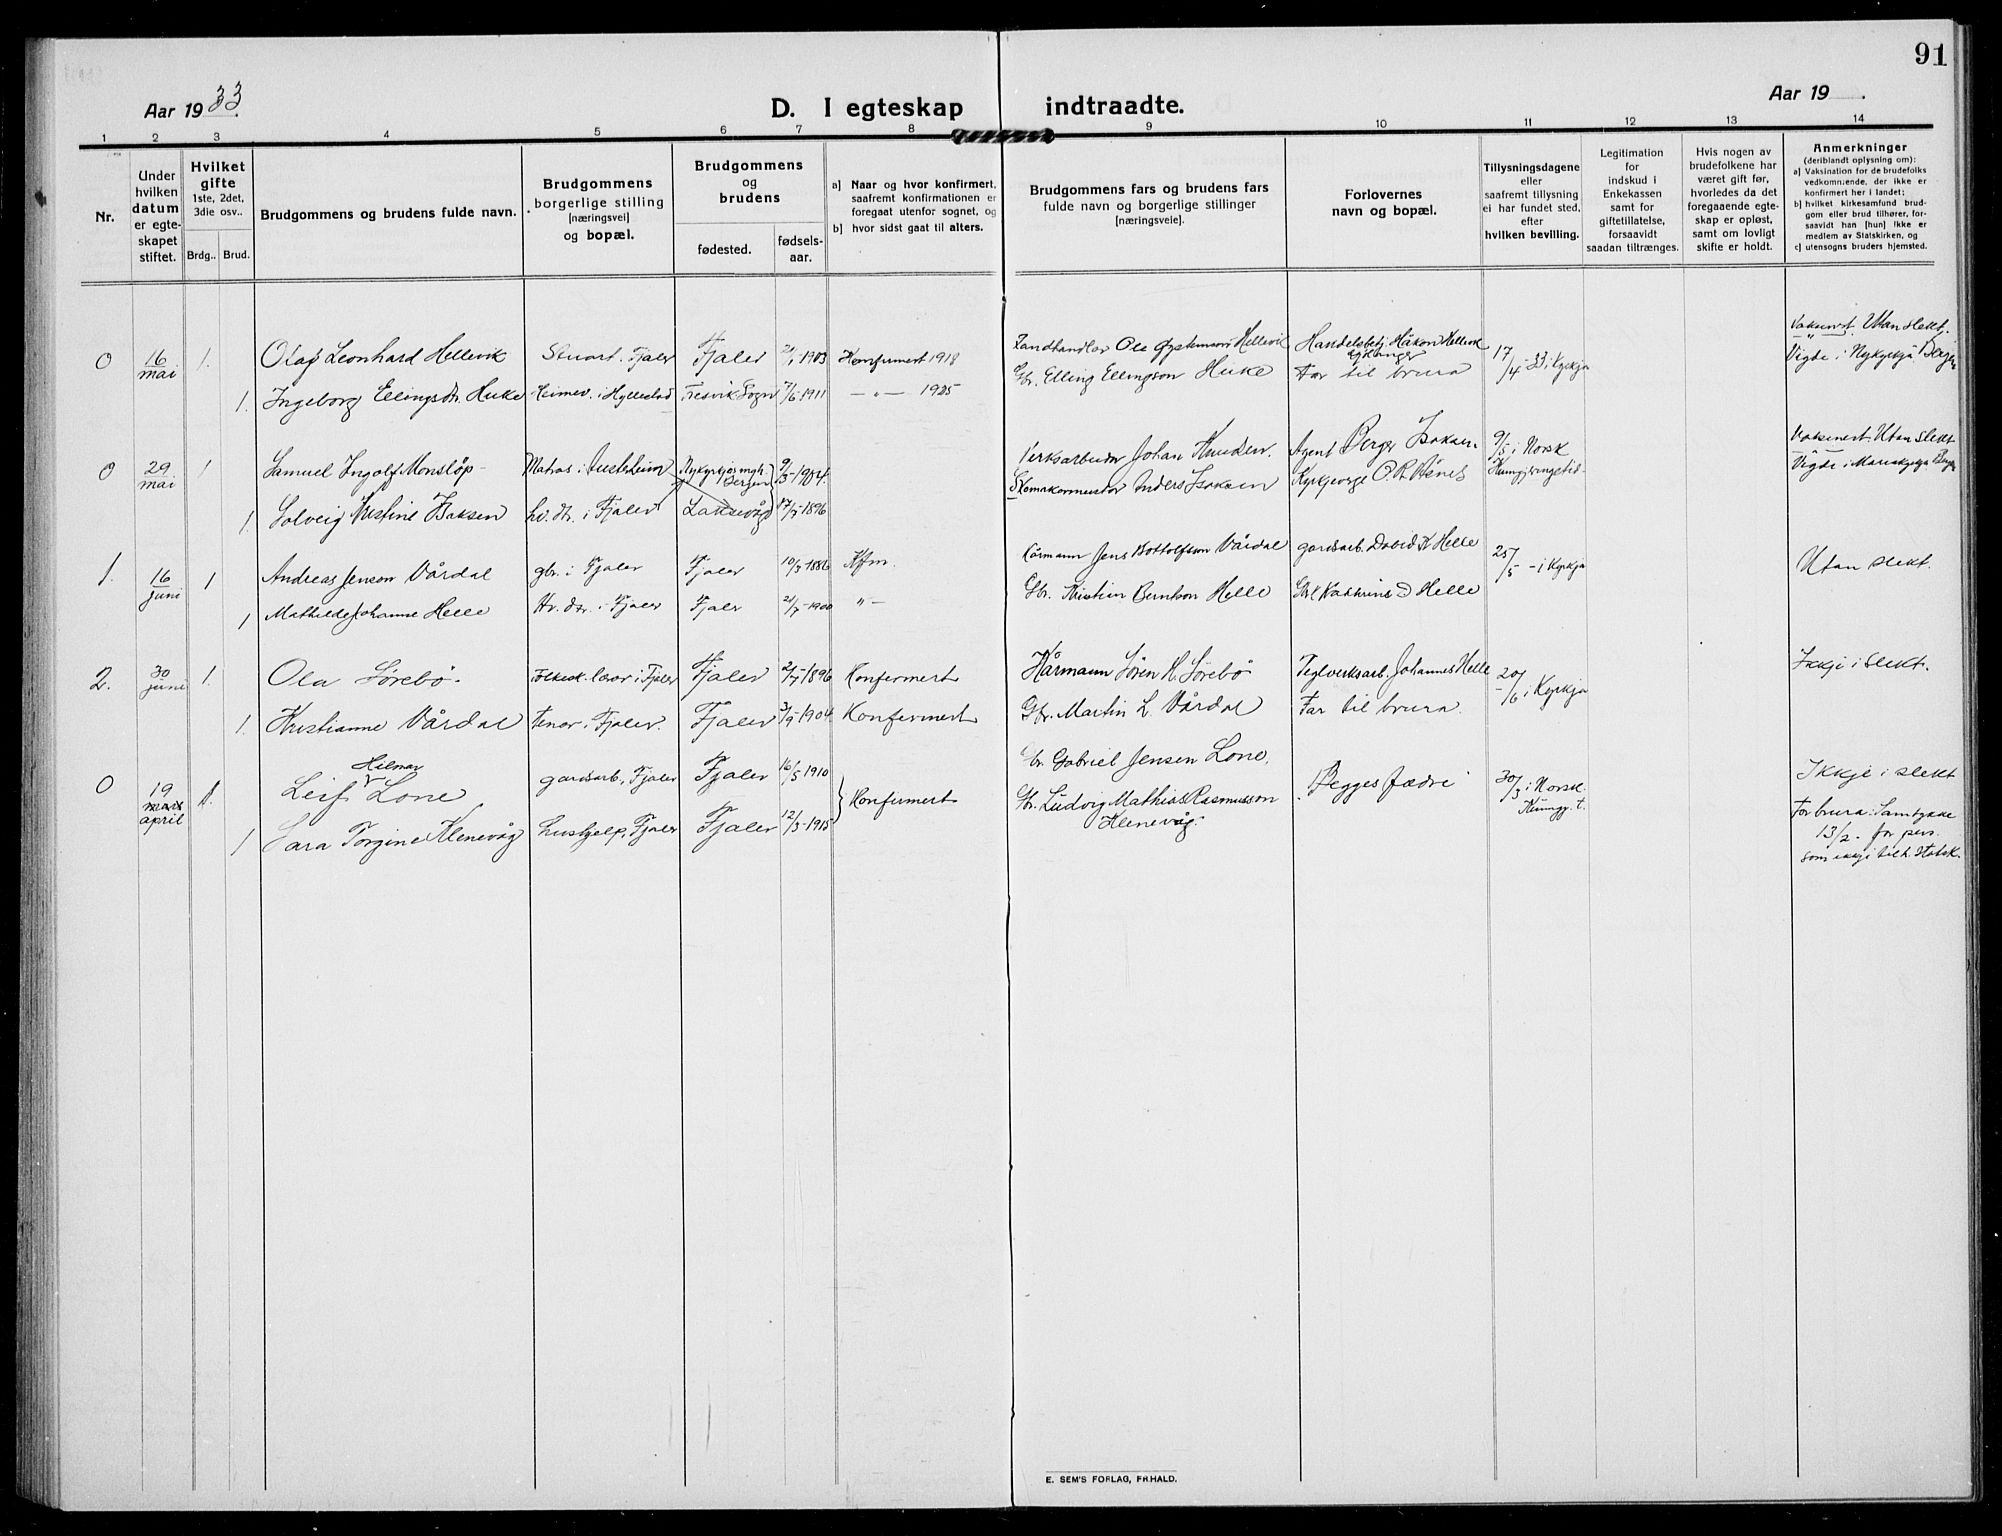 91
Aar 1933.
D. I egteskap indtraadte.
Aar 19 .
1 2 3 4 5 6 7 8 9 10 11 12 13 14
Nr.
Under hvilken datum er egteskapet stiftet.
Hvilket gifte 1ste, 2det, 3die osv..
Brdg.. Brud.
Brudgommens og brudens fulde navn.
Brudgommens borgerlige stilling [næringsvei] og bopæl.
Brudgommens og brudens
fødested.
fødselsaar.
a] Naar og hvor konfirmert, saafremt konfirmationen er foregaat utenfor sognet, og
b] hvor sidst gaat til alters.
Brudgommens fars og brudens fars fulde navn og borgerlige stillinger [næringsveie].
Forlovernes navn og bopæl.
Tillysningsdagene eller saafremt tillysning ei har fundet sted, efter hvilken bevilling.
Legitimation for indskud i Enkekassen samt for giftetillatelse, forsaavidt saadan tiltrænges.
Hvis nogen av brudefolkene har været gift før, hvorledes da det foregaaende egteskap er opløst, samt om lovligt skifte er holdt.
Anmerkninger (deriblandt oplysning om): a] Vaksination for de brudefolks vedkommende, der ikke er konfirmert her i landet; b] hvilket kirkesamfund brudgom eller brud tilhører, forsaavidt han [hun] ikke er medlem av Statskirken, og c] utensogns bruders hjemsted.
0 16 mai 1. Olaf Leonhard Hellevik Stuart. Fjaler Fjaler 2/1-1903 Konfirmert 1918 Landhandlar Ole Hellevik Handelsbetj. Håkon Hellevik 17/4-33 i Kyrkja Vaksinert. Utan slekt.
1. Ingeborg Ellingsdtr. Huke Heimev. i Hyllestad Fresvik Sogn 7/6-1911 —"— 1925 Gbr. Elling Ellingson Huke Far til brura Vigde i Nykyrkja Bergen
0 29 mai 1 Samuel Ingolf Monslöp Matros i Austrheim Nykyrkjesmgh. Bergen 9/3-1904. Verksarbeidar Johan Knudsen. Agent Berge Isaksen 9/5 i Norsk Kunngjeringstid. Vaksinert. Utan slekt
1. Solveig Kristine Isaksen hv. dtr. i Fjaler Laksevåg 17/7-1896 Skomakarmeister Anders Isaksen Kyrkjeverge O. R. Åsnes Vigde i Mariakyrkja Bergen
1. 16 juni 1 Andreas Jenson Vårdal gbr. i Fjaler Fjaler 10/3-1886 Kfm. Kårmann Jens Bottolfson Vårdal gardsarb. David K Helle 25/5 - i Kyrkja Utan slekt.
1 Mathilde Johanne Helle Hv. dtr. i Fjaler Fjaler 21/7-1900 "— Gbr. Kristian Berntson Helle Frk Kathrine D Helle
2. 30 juni 1. Ola Sørebö. Folkesk. lærar i Fjaler Fjaler 2/7-1896 Konfermert Kårmann Sören K. Sörebö Teglverksarb. Johannes Helle 20/6 i Kyrkja Ikkje i slekt.
1. Kristianne Vårdal Tenar i Fjaler. Fjaler 3/9-1904 Konfermert Gbr. Martin L. Vårdal Far til brura.
0 19 april 1. Leif Hilmar Lone gardsarb. Fjaler Fjaler 16/5-1910 Konfermert Gbr. Gabriel Jensen Lone. Begges fædre 30/3 i Norsk. Kunngj. t. Ikkje i slekt
1 Sara Torgine Klenevåg hushjelp, Fjaler Fjaler 12/3-1915 Gbr. Ludvig Mathias Rasmusson Klenevåg. For brura: Samtykke 13/2. for pers. som ikkje tilh. Statsk.
E. SEM'S FORLAG, FR.HALD.